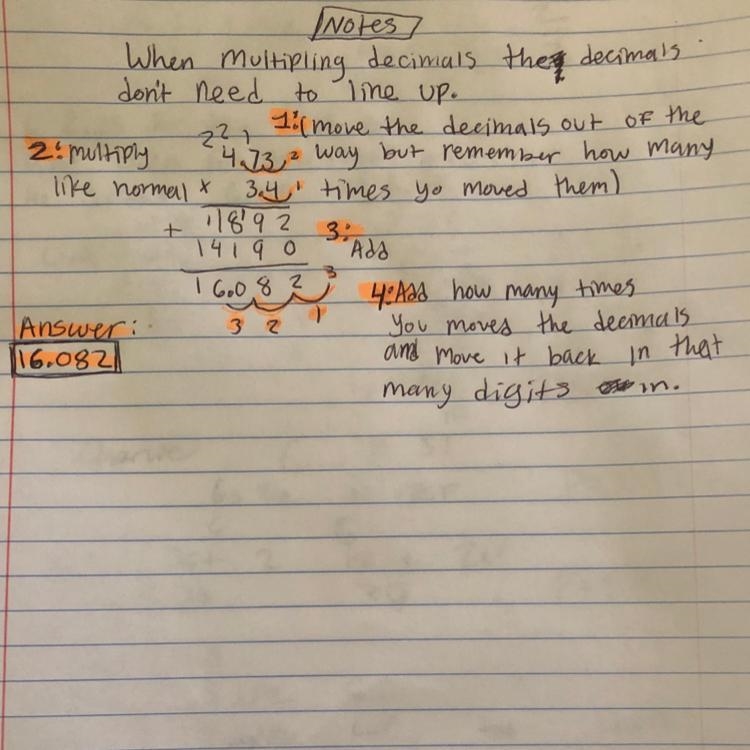 Notes
When multipling decimals the decimals
don't need to line up.
1: (move the decimals out of the
way but remember how many
times yo moved them)
2: multiply
like normal
2 2 1
4.73 2
x 3.4 1
11892
+ 14190
16.082 3
3 2 1
3:
Add
4: Add how many times
you moves the decimals
and move it back in that
many digits in.
Answer:
16.082